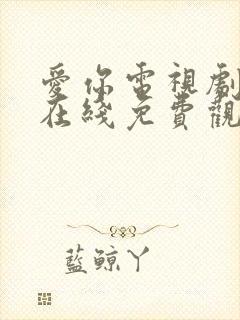 愛你電視劇
在綫免費觀
藍鯨丫